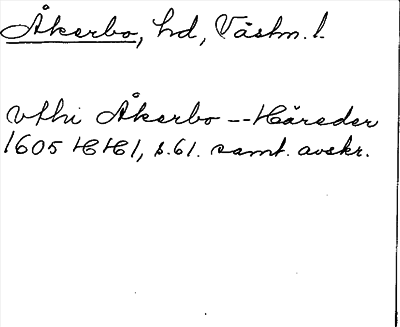 Åkerbo, hd, Västm. l.
vthi Åkerbo -- Häreder
1605 HH1, s. 61. samt. avskr.